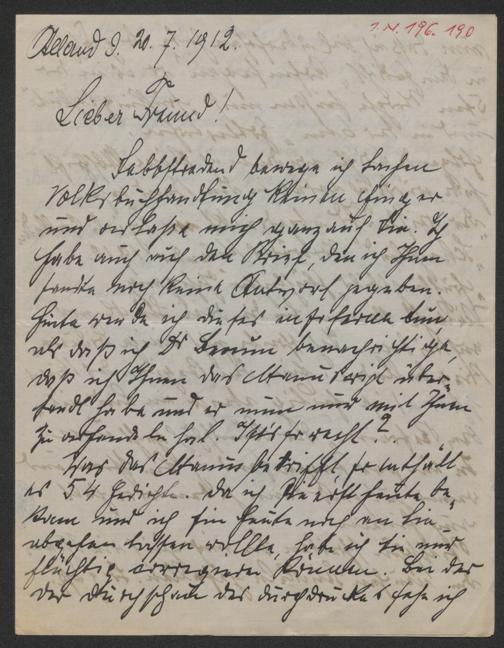 20. 7. 1912.
I. N. 196.190
Lieber Freund!
Selbstredend bewege ich Sachen
Volksbuchhandlung keinen Finger
und verlasse mich ganz auf Sie. Ich
habe auch auf den Brief, den ich Ihnen
sandte noch keine Antwort gegeben.
Heute werde ich dieses insoferne tun,
als daß ich Dr Braun benachrichtige,
daß ich Ihnen das Manuskript über-
sandt habe und er nun nur mit Ihnen
zu verhandeln hat. Ist's so recht?
Was das Manus betrifft, so enthält
es 54 Gedichte. Da ich sie erst heute be-
kam und ich sie heute noch an Sie
abgehen lassen wollte, habe ich sie nur
flüchtig korrigieren können. Bei der
der Durchschau des Durchdruckes sehe ich